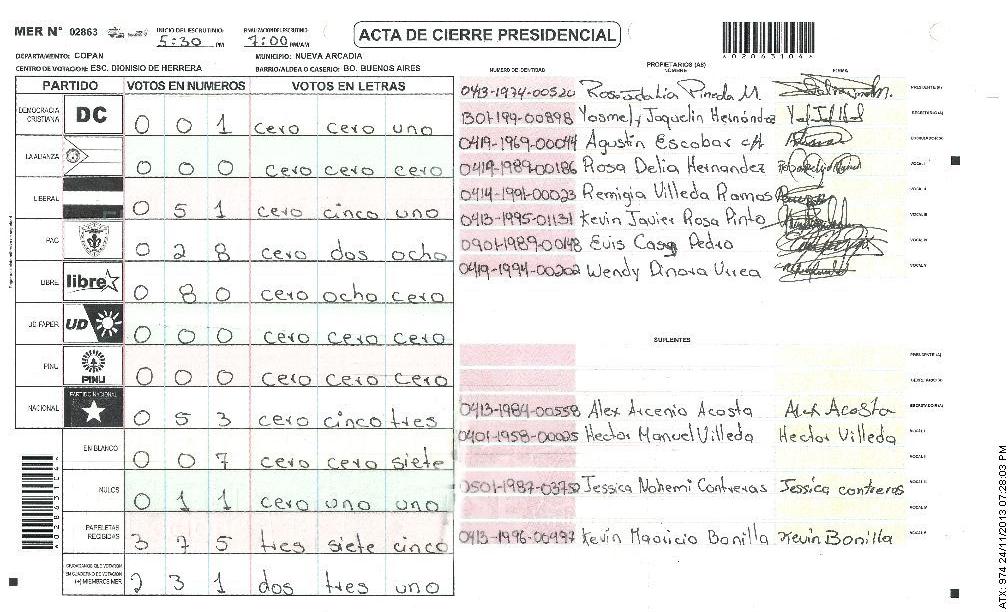 MER N° 02863
INICIO DEL ESCRUTINIO: 5:30 PM
FINALIZACION DEL ESCRUTINIO: 7:00 PM/AM
ACTA DE CIERRE PRESIDENCIAL
DEPARTAMENTO: COPAN
MUNICIPIO: NUEVA ARCADIA
CENTRO DE VOTACION: ESC. DIONISIO DE HERRERA
BARRIO/ALDEA O CASERIO: BO. BUENOS AIRES
PARTIDO VOTOS EN NUMEROS VOTOS EN LETRAS
DEMOCRACIA CRISTIANA DC 0 0 1 cero cero uno
LA ALIANZA 0 0 0 cero cero cero
LIBERAL 0 5 1 cero cinco uno
PAC 0 2 8 cero dos ocho
LIBRE libre 0 8 0 cero ocho cero
UD FAPER UD 0 0 0 cero cero cero
PINU PINU 0 0 0 cero cero cero
NACIONAL PARTIDO NACIONAL 0 5 3 cero cinco tres
EN BLANCO 0 0 7 cero cero siete
NULOS 0 1 1 cero uno uno
PAPELETAS RECIBIDAS 3 7 5 tres siete cinco
CIUDADANOS QUE VOTARON EN CUADERNO DE VOTACION (+) MIEMBROS MER 2 3 1 dos tres uno
PROPIETARIOS (AS)
NUMERO DE IDENTIDAD NOMBRE FIRMA
0413-1974-00520 Rosa Idalia Pineda M. PRESIDENTE (A)
1301-199-00898 Yosmely Jaquelin Hernández SECRETARIO (A)
0419-1969-00044 Agustin Escobar ESCRUTADOR (A)
0419-1989-00186 Rosa Delia Hernandez VOCAL I
0414-1991-00023 Remigia Villeda Ramos VOCAL II
0413-1995-01131 Kevin Javier Rosa Pinto VOCAL III
0901-1989-00148 Pedro VOCAL IV
0419-1994-00202 Wendy Dinora Urrea VOCAL V
SUPLENTES
PRESIDENTE (A)
SECRETARIO (A)
0413-1984-00558 Alex Arcenio Acosta Alex Acosta ESCRUTADOR (A)
0401-1958-00025 Hector Manuel Villeda Hector Villeda VOCAL I
VOCAL II
0501-1987-03752 Jessica Nohemi Contreras Jessica contreras VOCAL III
VOCAL IV
0413-1996-00497 Kevin Mauricio Bonilla Kevin Bonilla VOCAL V
ATX: 974 24/11/2013 07:28:03 PM